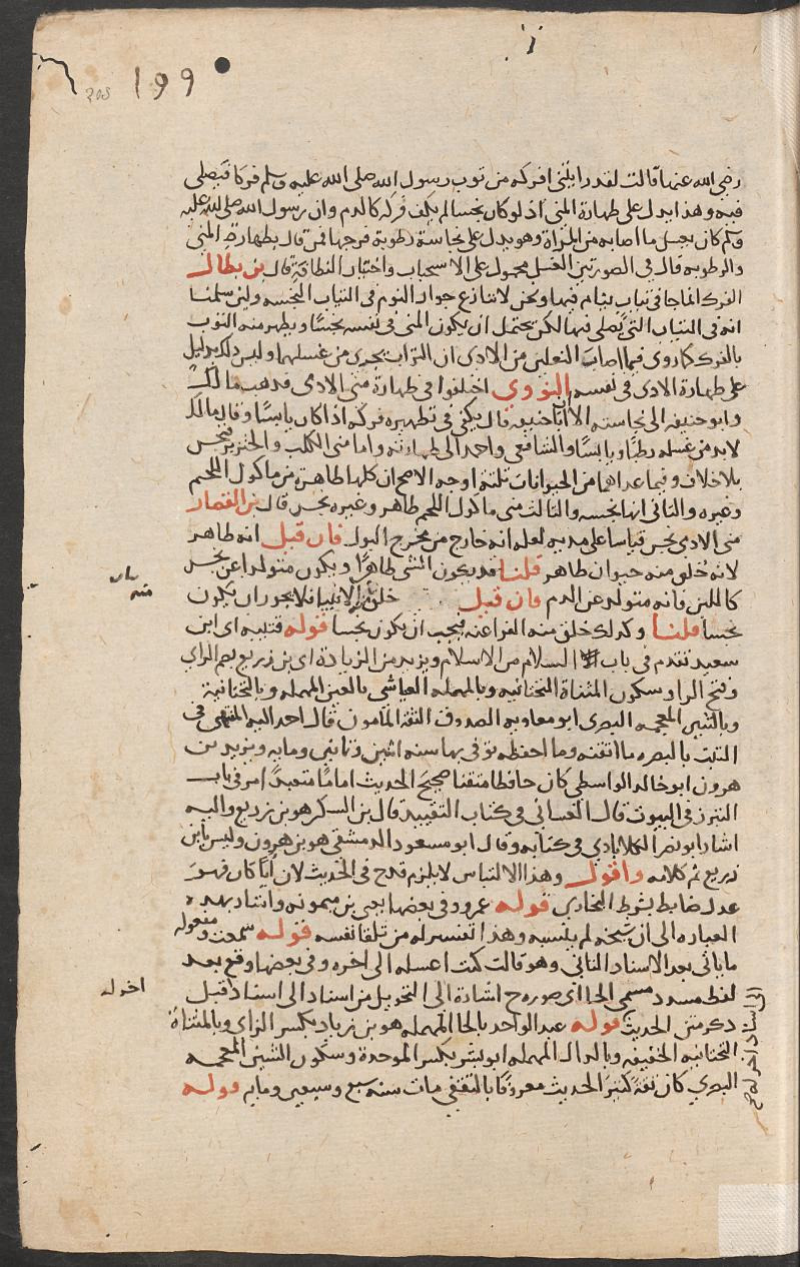 199
205
رضي الله عنها قالت لقد رايتني افركه من ثوب رسول الله صلى الله عليه وسلم فركا فيصلي
فيه وهذا يدل على طهارة المني اذ لو كان نجسا لم يكف فركه كالدم وان رسول الله صلى الله عليه
وسلم كان يغسل ما اصابه من المراة وهو يدل على نجاسة رطوبة فرجها فمن قال بطهارة المني
والرطوبة قال في الصورتين الغسل محمول على الاستحباب واختيار النظافة قال بن بطال
الفرك انما جا في ثياب ينام فيها ونحن لا ننازع جواز النوم في الثياب النجسه ولين سلمنا
انه في الثياب التي يصلي فيها لكن يحتمل ان يكون المني في نفسه نجسا ويطهر منه الثوب
بالفرك كما روي فيما اصاب النعلين من الاذى ان التراب يجزي من غسلهما وليس ذلك بدليل
على طهارة الاذى في نفسه النووي اختلفوا في طهارة مني الادمي فذهب مالك
وابو حنيفه الى نجاسته الا ان ابا حنيفه قال يكفي في تطهيره فركه اذا كان يابسا وقال مالك
لا بد من غسله رطبا ويابسا والشافعي واحمد الى طهارته واما مني الكلب والخنزير فنجس
بلا خلاف وفيما عداهما من الحيوانات ثلثة اوجه الاصح ان كلها طاهرة من ماكول اللحم
وغيره والثاني انها نجسه والثالث مني ماكول اللحم طاهر وغيره نجس قال بن القصار
مني الادمي نجس قياسا على مذيه لعله انه خارج من مخرج البول فان قيل انه طاهر
لانه خلق منه حيوان طاهر قلنا قد يكون الشي طاهرا ويكون متولدا عن نجس
كاللبن فانه متولد عن الدم فان قيل خلق منه الانبيا فلا يجوز ان يكون
نجسا قلنا وكذلك خلق منه الفراعنه فيجب ان يكون نجسا قوله قتيبه اي ابن
سعيد تقدم في باب السلام من الاسلام ويزيد من الزيادة اي بن زريع بضم الزاي
وفتح الرا وسكون المثناة التحتانيه وبالمهمله العياشي بالعين المهمله وبالتحتانية
وبالشين المعجمه البصري ابو معاويه الصدوق الثقة المامون قال احمد اليه المنتهى في
التثبت بالبصره ما اتقنه وما احفظه توفي بها سنه اثنين وثمانين ومايه ويزيد بن
هرون ابو خالد الواسطي كان حافظا متقنا صحيح الحديث اماما متعبدا مر في باب
التبرز في البيوت قال الغساني في كتاب التقييد قال بن السكن هو بن زريع واليه
اشار ابو نصر الكلاباذي في كتابه وقال ابو مسعود الدمشقي هو بن هرون وليس بابن
زريع تم كلامه واقول وهذا الالتباس لا يلزم قدح في الحديث لان ايا كان فهو
عدل ضابط بشرط البخاري قوله عمرو وفي بعضها يعني بن ميمونه واشار بهذه
العباره الى ان شيخه لم ينسبه وهذا تفسير له من تلقا نفسه قوله سمعت ومفعوله
ما ياتي بعد الاسناد الثاني وهو قالت كنت اغسله الى اخره وفي بعضها وقع بعد
لفظ مسدد مسمى الحا اي صوره ح اشارة الى التحويل من اسناد الى اسناد قبل
ذكر متن الحديث قوله عبد الواحد بالحا المهمله هو بن زياد بكسر الزاي وبالمثناة
التحتانيه الخفيفه وبالدال المهمله ابو بشر بكسر الموحدة وسكون الشين المعجمه
البصري كان ثقة كثير الحديث معروفا بالثقفي مات سنه سبع وسبعين ومايه قوله